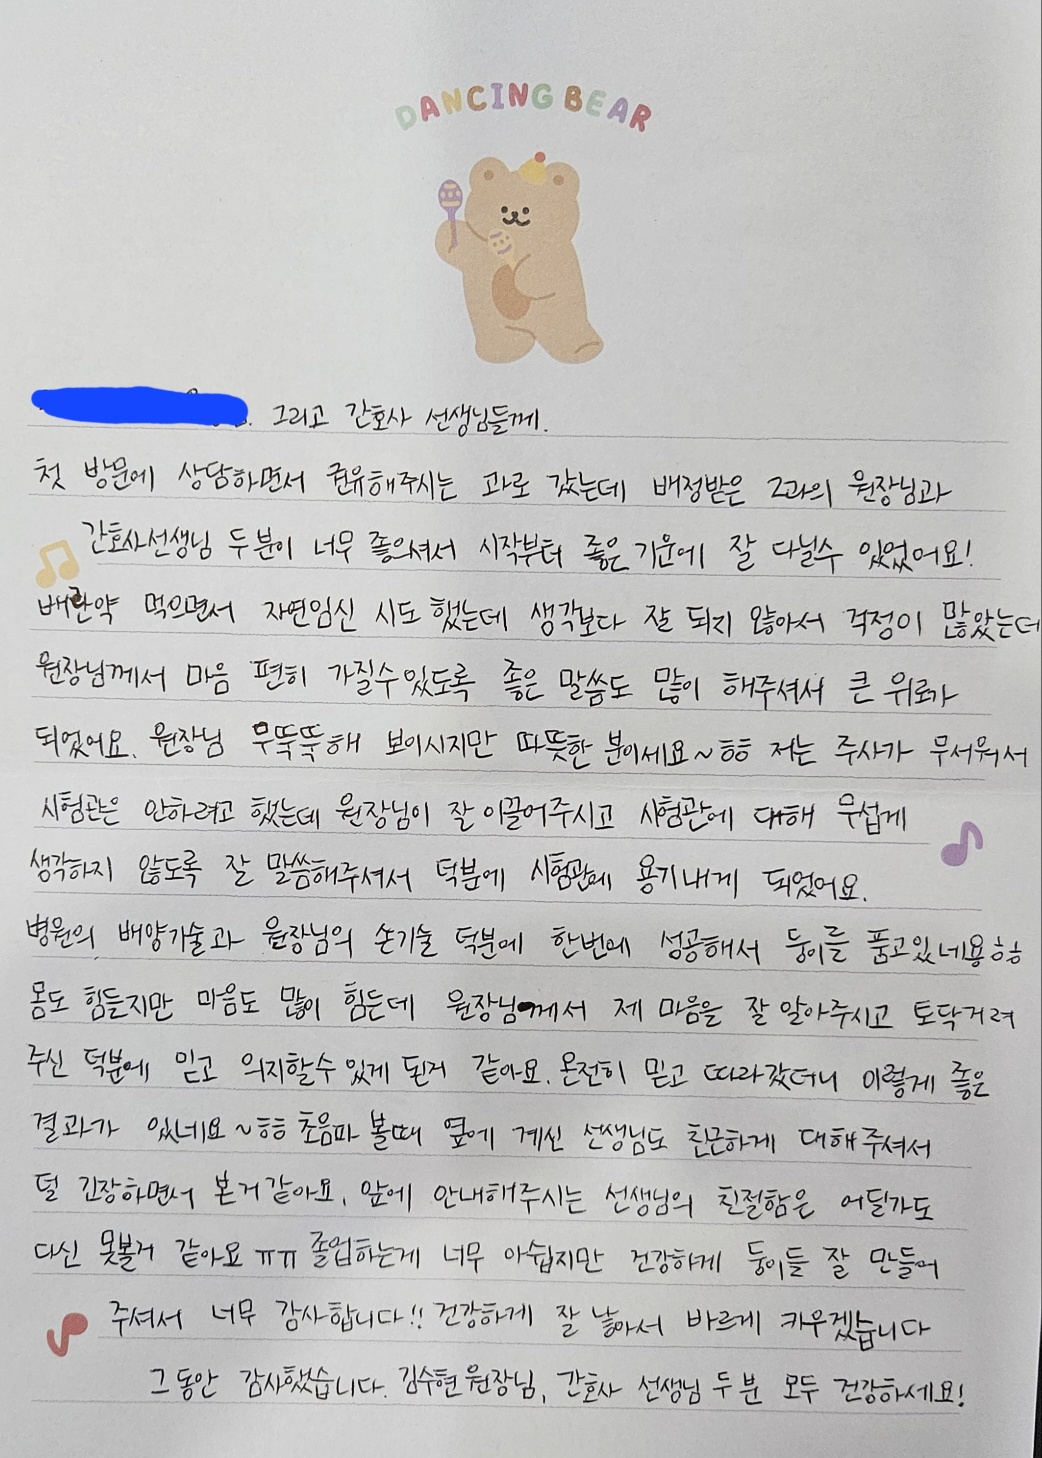 DANCING BEAR
그리고 간호사 선생님들께.
첫 방문에 상담하면서 권유해주시는 과로 갔는데 배정받은 2과의 원장님과
간호사선생님 두분이 너무 좋으셔서 시작부터 좋은기운에 잘 다닐수 있었어요!
배란약 먹으면서 자연임신 시도 했는데 생각보다 잘 되지 않아서 걱정이 많았는데
원장님께서 마음 편히 가질수있도록 좋은 말씀도 많이 해주셔서 큰 위로가
되었어요. 원장님 무뚝뚝해 보이시지만 따뜻한 분이세요~ㅎㅎ 저는 주사가 무서워서
시험관은 안하려고 했는데 원장님이 잘 이끌어주시고 시험관에 대해 무섭게
생각하지 않도록 잘 말씀해주셔서 덕분에 시험관에 용기내게 되었어요.
병원의 배양기술과 원장님의 손기술 덕분에 한번에 성공해서 둥이를 품고있네용ㅎㅎ
몸도 힘들지만 마음도 많이 힘든데 원장님께서 제 마음을 잘 알아주시고 토닥거려
주신 덕분에 믿고 의지할수있게 된거 같아요. 온전히 믿고 따라갔더니 이렇게 좋은
결과가 있네요~ㅎㅎ 초음파 볼때 옆에 계신 선생님도 친근하게 대해주셔서
덜 긴장하면서 본거같아요. 앞에 안내해주시는 선생님의 친절함은 어딜가도
다신 못볼거 같아요ㅠㅠ 졸업하는게 너무 아쉽지만 건강하게 둥이들 잘 만들어
주셔서 너무 감사합니다!! 건강하게 잘 낳아서 바르게 키우겠습니다
그동안 감사했습니다. 김수현원장님, 간호사 선생님 두분 모두 건강하세요!